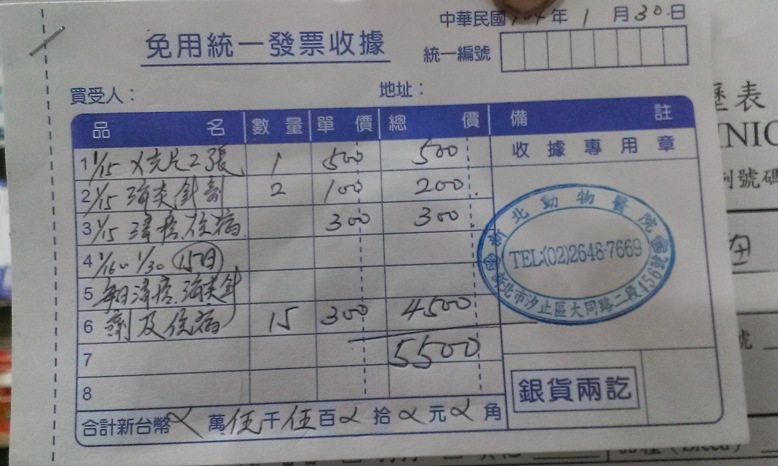 中華民國104年1月30日
免用統一發票收據
統一編號
買受人：
地址：
品名 數量 單價 總價 備註
收據專用章
1 1/15 X光片2張 1 500 500
2 1/15 消炎針劑 2 100 200
3 1/15 清瘡住病 300 300
4 1/16~1/30 15日
5 每日清瘡.消炎針
6 劑及住病 15 300 4500
7 5500
8
合計新台幣 萬伍千伍百 拾 元 角
北動物醫院
TEL:(02)2648-7669
新北市汐止區大同路二段456號
銀貨兩訖
歷表
NIC
例號碼
號